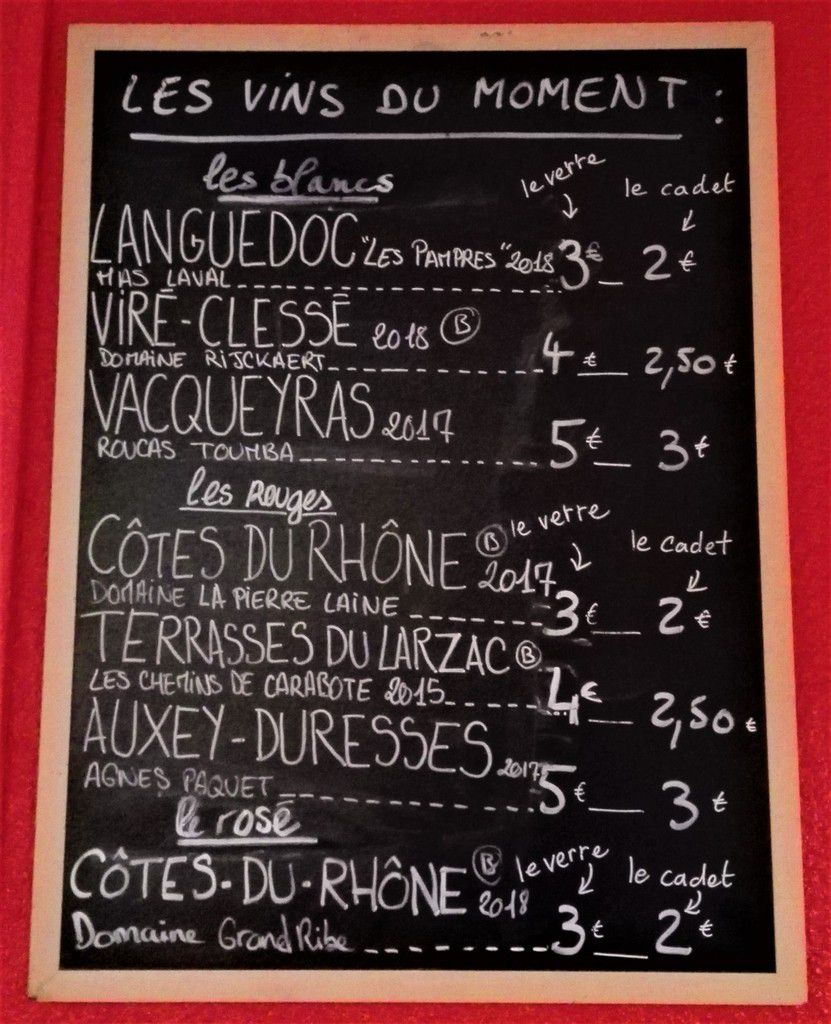 LES VINS DU MOMENT :
les blancs le verre le cadet
LANGUEDOC "LES PAMPRES" 2018 3€ 2€
MAS LAVAL
VIRÉ-CLESSÉ 2018 B
DOMAINE RIJCKAERT 4€ 2,50€
VACQUEYRAS 2017
ROUCAS TOUMBA 5€ 3€
les Rouges
CÔTES DU RHÔNE B 2017 le verre le cadet
DOMAINE LA PIERRE LAINE 3€ 2€
TERRASSES DU LARZAC B
LES CHEMINS DE CARABOTE 2015 4€ 2,50€
AUXEY-DURESSES 2017
AGNES PAQUET 5€ 3€
le rosé
CÔTES-DU-RHÔNE B 2018 le verre le cadet
Domaine Grand Ribe 3€ 2€